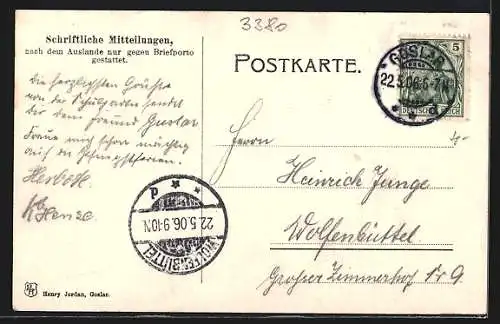 3380
Schriftliche Mitteilungen,
nach dem Auslande nur gegen Briefporto
gestattet.
POSTKARTE.
Die herzlichsten Grüsse
von der Schulpartie sendet
Dir dein Freund Gustav
Freue mich schon mächtig
auf die Pfingstferien.
Herrn
Heinrich Junge
Wolfenbüttel
Großer Zimmerhof Nr 9.
GOSLAR
22.5.06.6-7N.
5
DEUTSCHES REICH
WOLFENBÜTTEL
22.5.06.9-10N
Henry Jordan, Goslar.